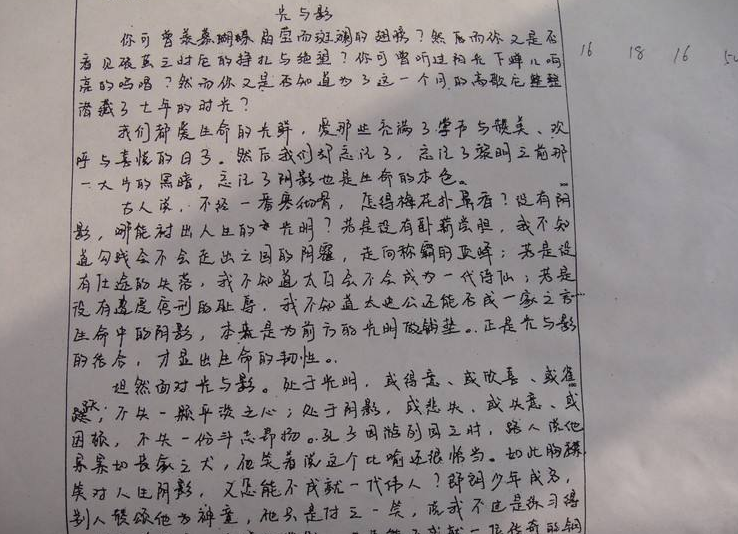 光与影
你可曾羡慕蝴蝶晶莹而斑斓的翅膀？然而你又是否
看见破茧之时它的挣扎与绝望？你可曾听过阳光下蝉儿响
亮的鸣唱？然而你又是否知道为了这一个月的高歌它整整
潜藏了七年的时光？
我们都爱生命的光鲜，爱那些充满了掌声与赞美、欢
呼与喜悦的日子。然后我们却忘记了，忘记了黎明之前那
一大片的黑暗，忘记了阴影也是生命的本色。
古人说，不经一番寒彻骨，怎得梅花扑鼻香？没有阴
影，哪能衬出人生的光明？若是没有卧薪尝胆，我不知
道勾践会不会走出亡国的阴霾，走向称霸的巅峰；若是没
有仕途的失落，我不知道太白会不会成为一代诗仙；若是
没有遭度宫刑的耻辱，我不知道太史公还能否成一家之言…
生命中的阴影，本来是为前方的光明做铺垫。正是光与影
的结合，才显出生命的韧性。
坦然面对光与影。处于光明，或得意、或欣喜、或雀
跃，不失一颗平淡之心；处于阴影，或悲失、或失意、或
困顿，不失一份斗志昂扬。孔子周游列国之时，路人说他
累累如丧家之犬，他笑着说这个比喻还很恰当。如此胸襟
笑对人生阴影，又怎能不成就一代伟人？郎朗少年成名，
别人赞颂他为神童，他只是付之一笑，说我不过是练习得
16 18 16